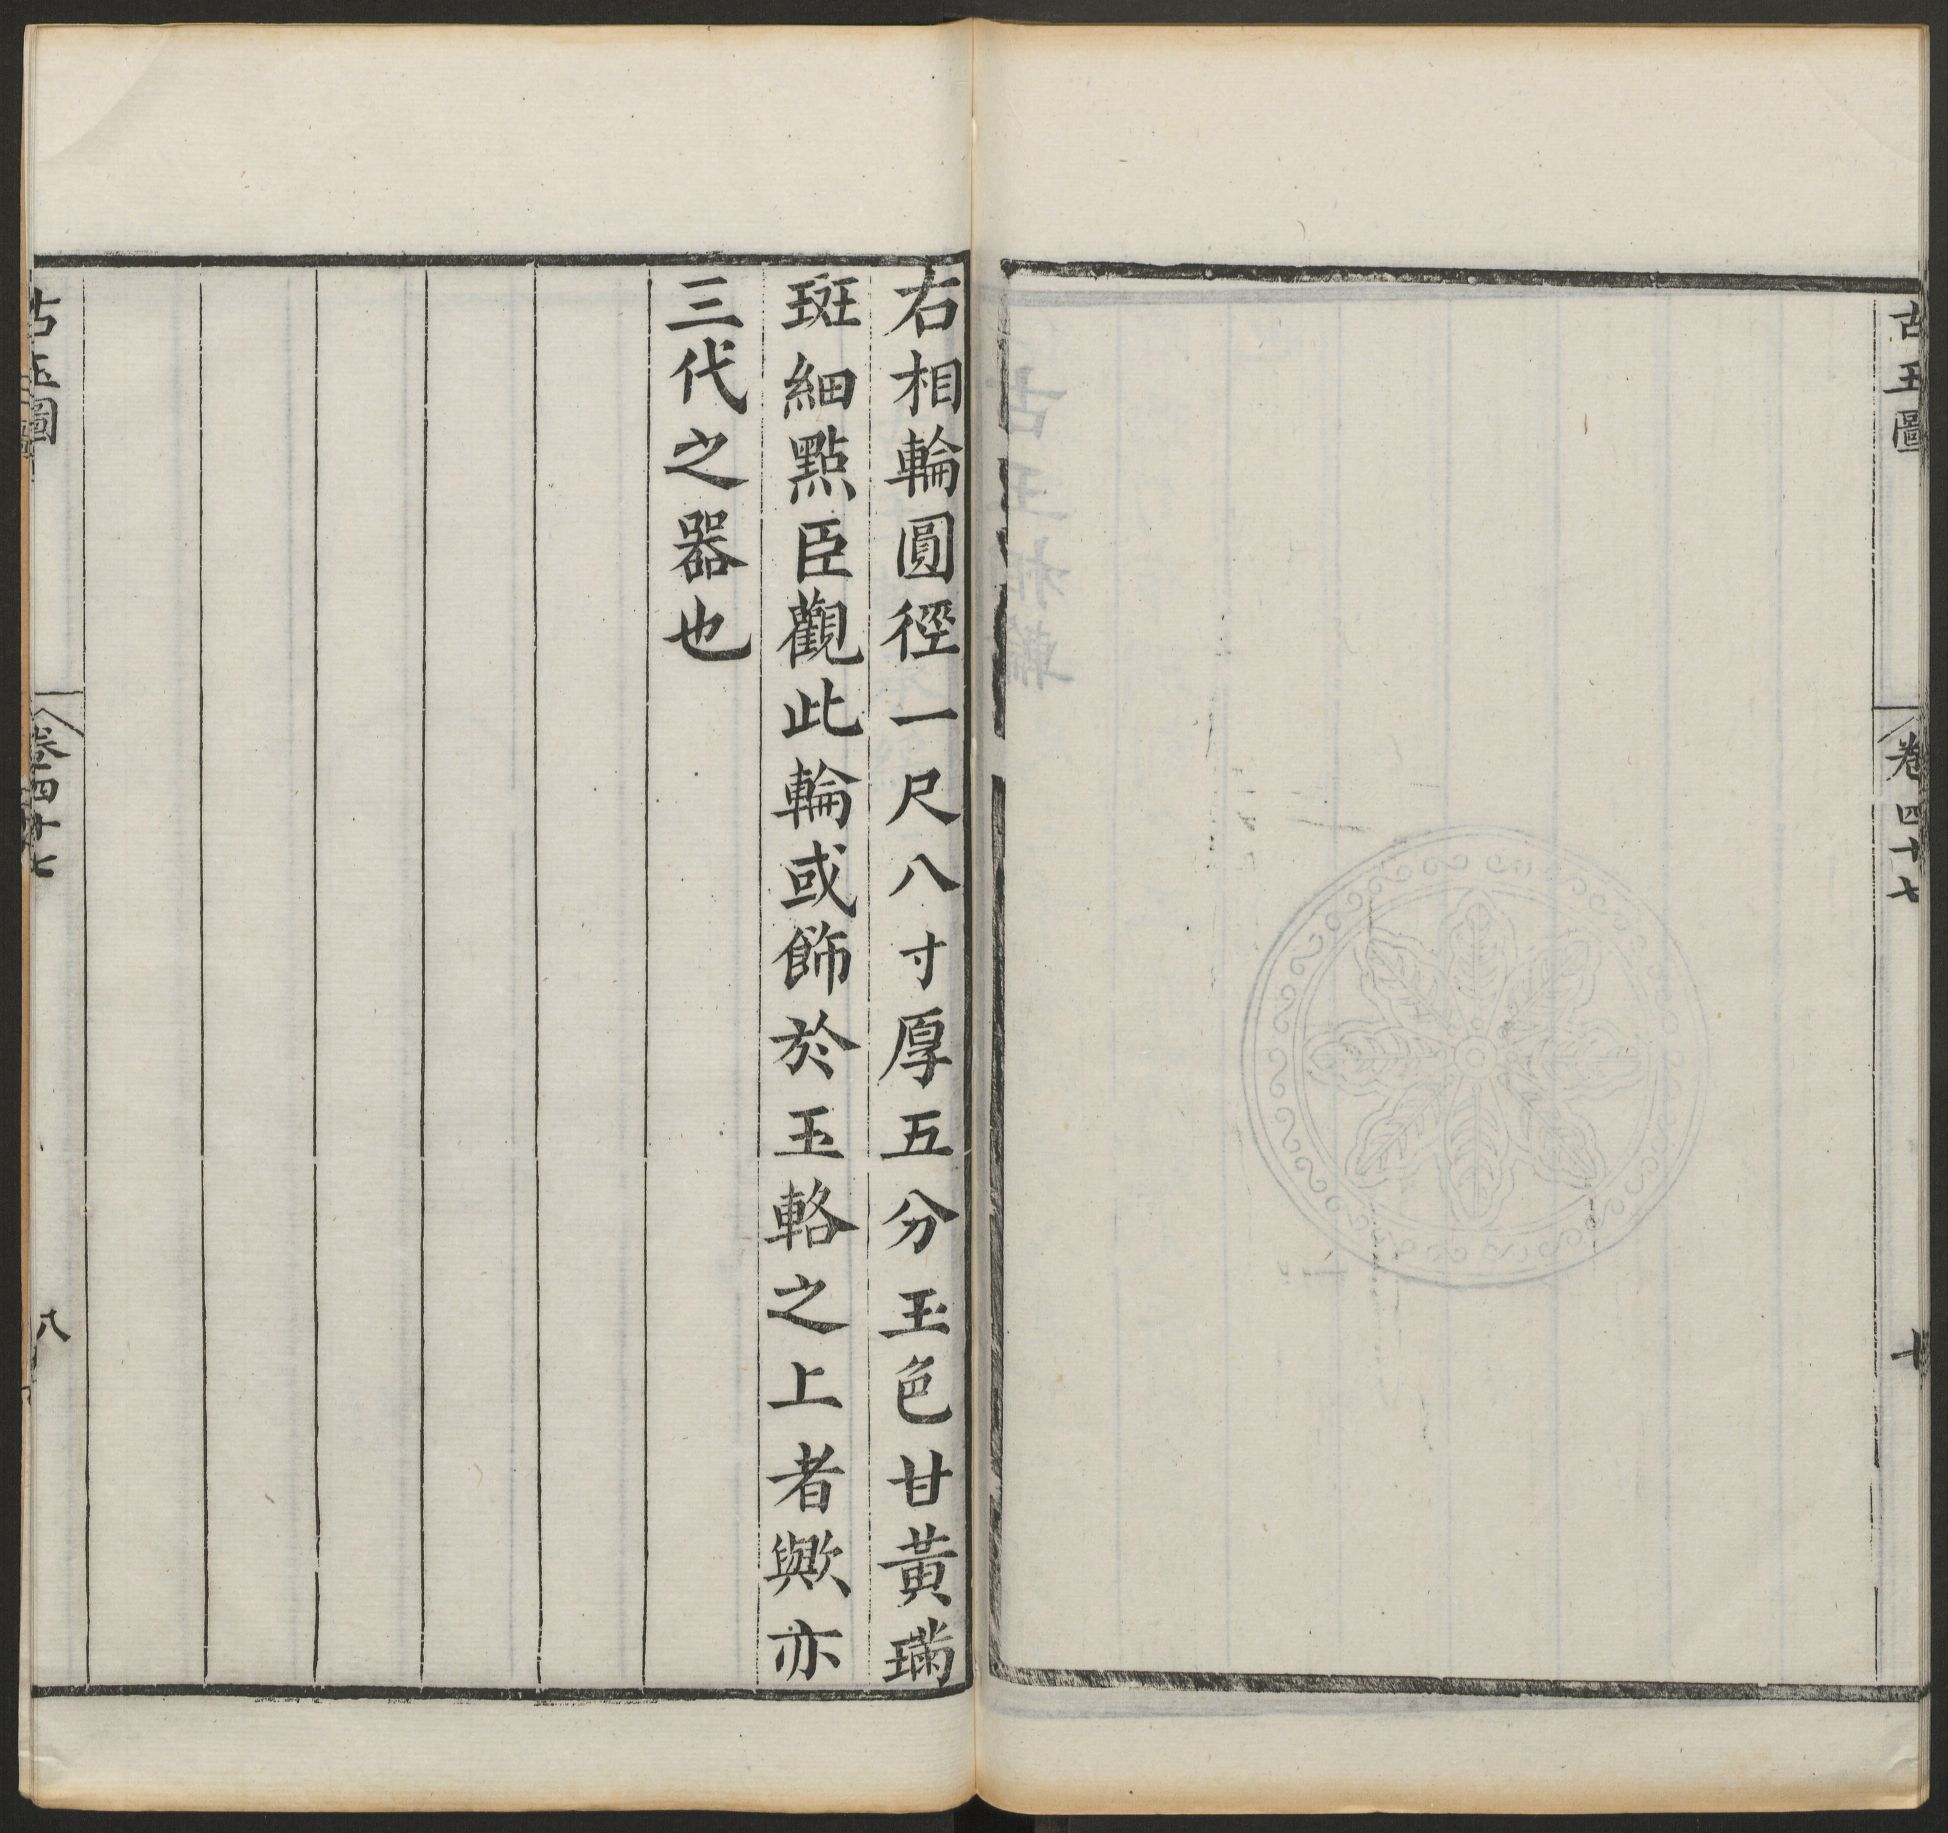 古玉圖
卷四十七
七
右相輪圓徑一尺八寸厚五分玉色甘黃璊
斑細點臣觀此輪或飾於玉輅之上者歟亦
三代之器也
古玉圖
卷四十七
八